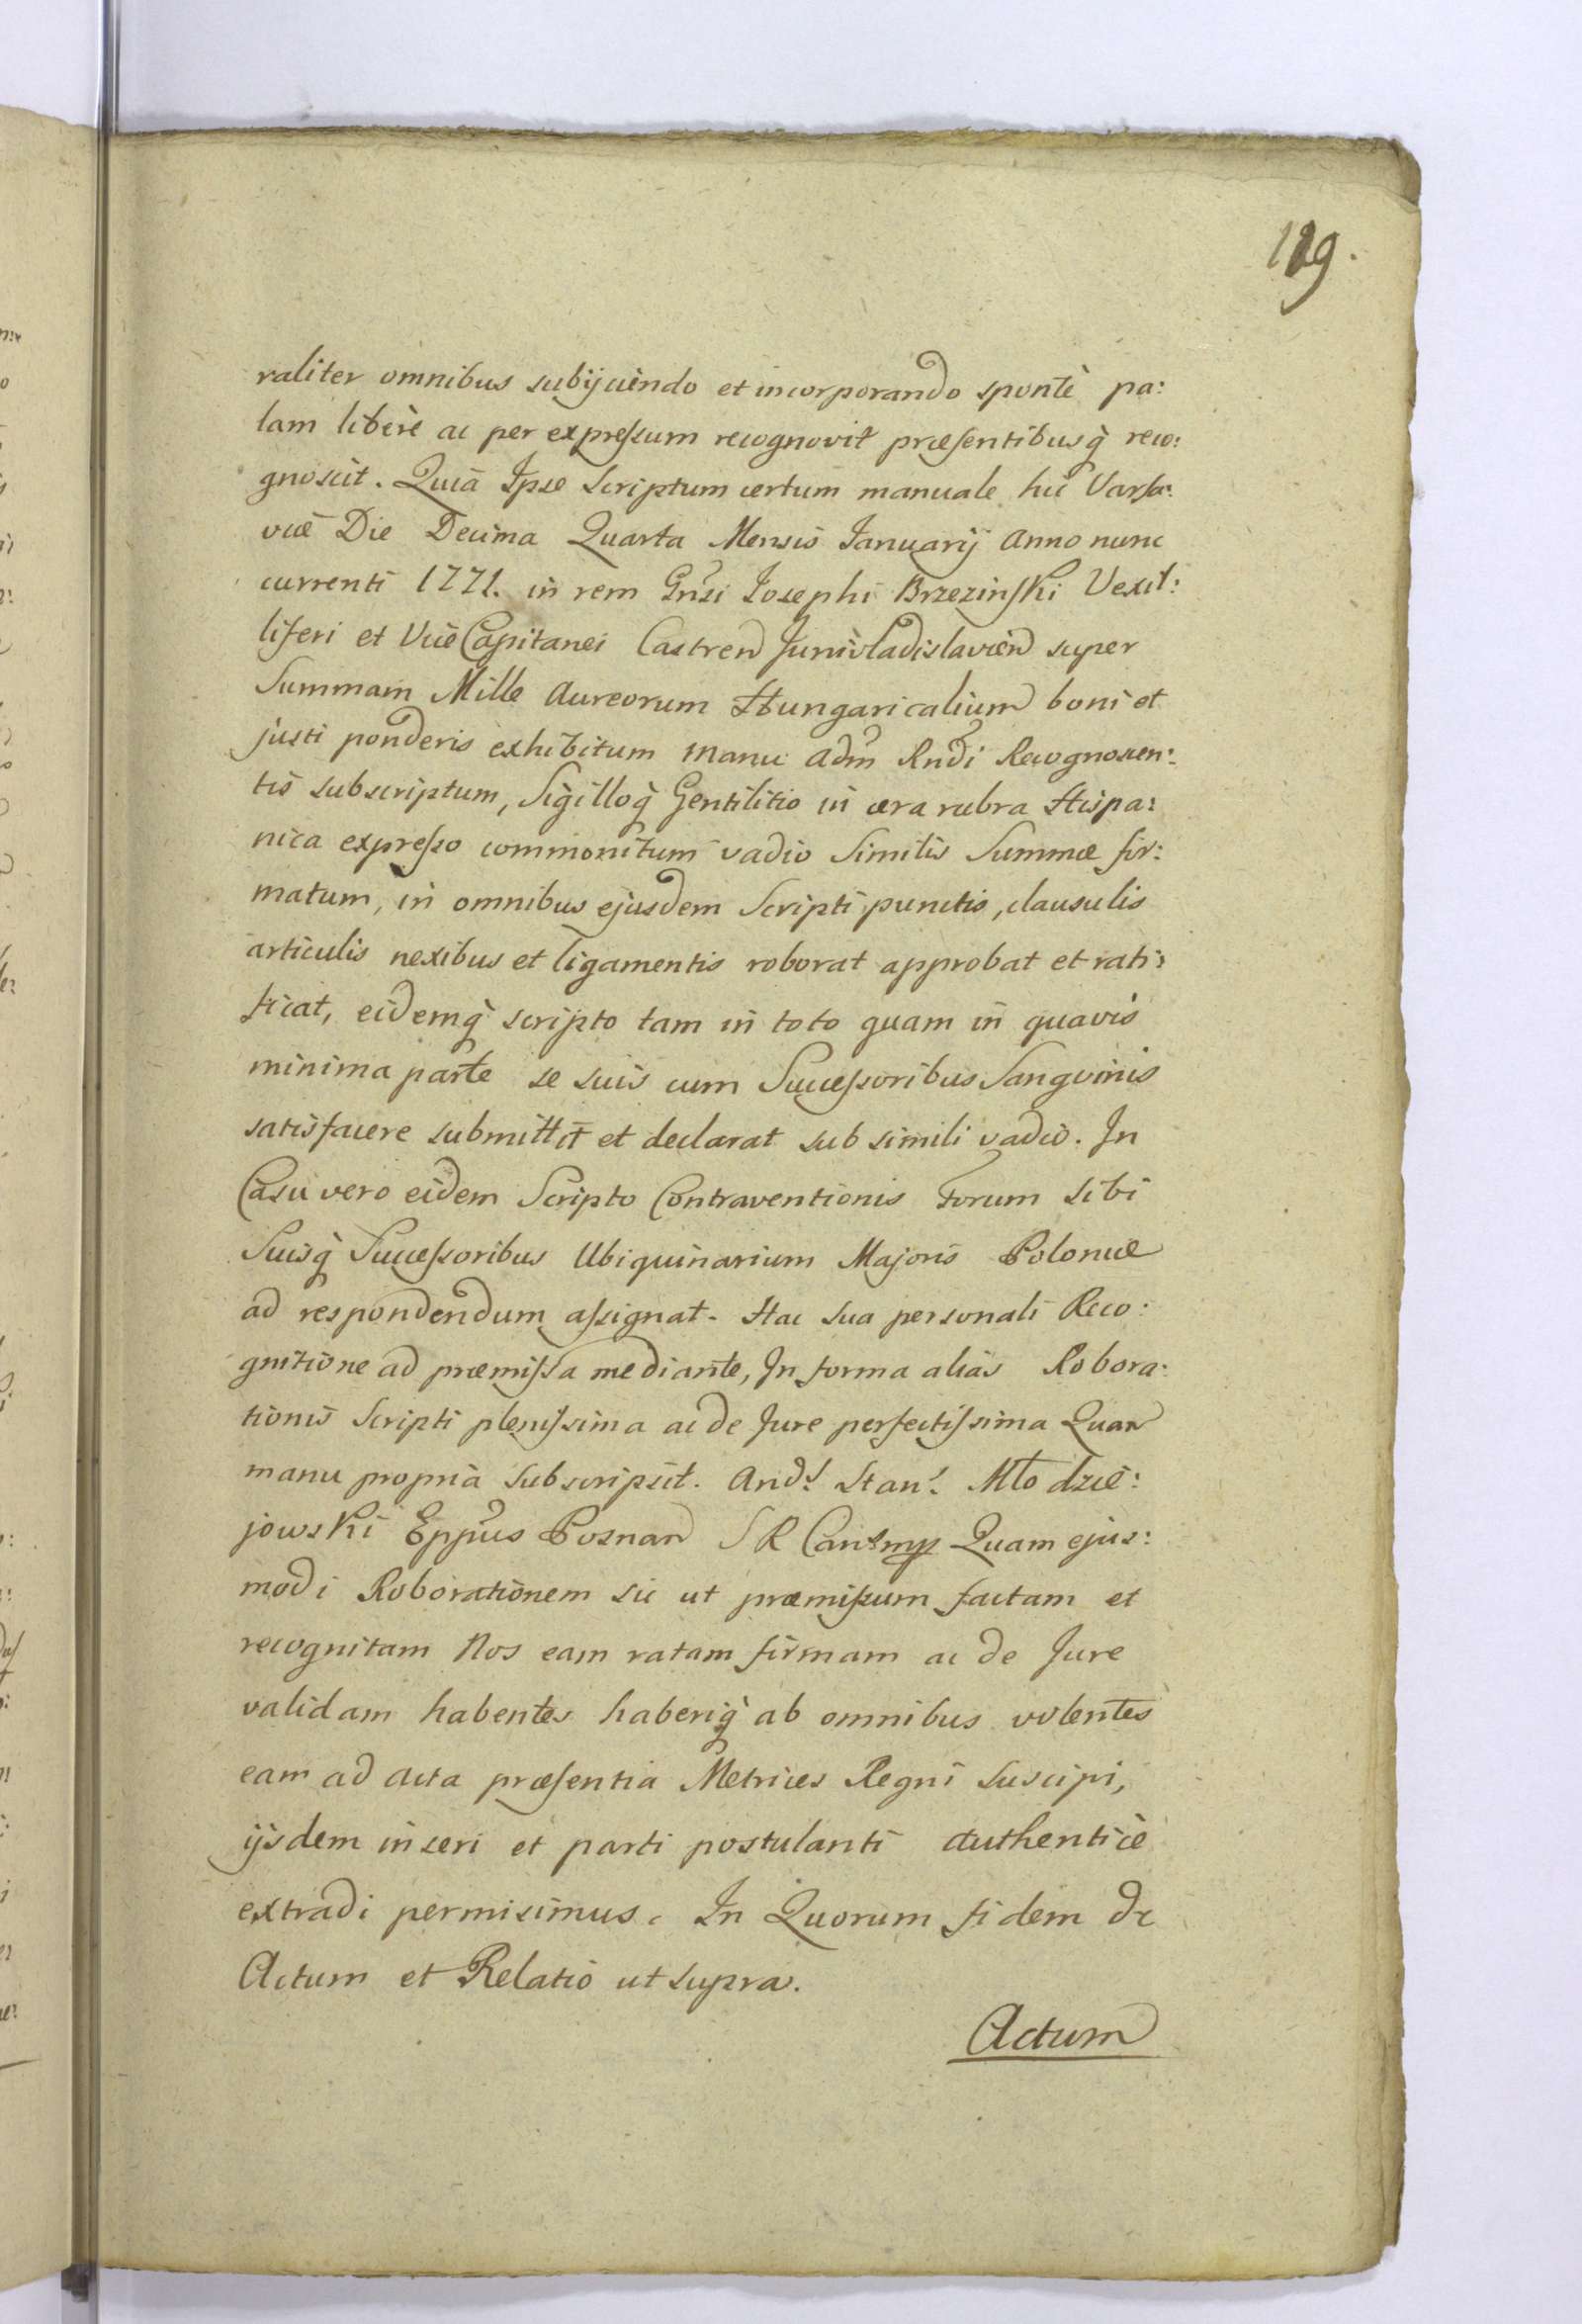 119.
raliter omnibus subijciendo et incorporando spontè pa:
lam liberè ac per expreſsum recognovit præsentibusq̀ reco:
gnoscit. Quià Ipse Scriptum certum manuale hic Varsa:
viæ Die Decima Quarta Mensis Ianuarij Anno nunc
currenti 1771. in rem Gnsi Iosephi Brzezinſki Vexil:
liferi et Vice Capitanei Castren Junivladislavien super
Summam Mille Aureorum Hungaricalium boni et
justi ponderis exhibitum manu Adm Rndi Recognoscen:
tis subscriptum, Sigilloq̀ Gentilitio in cera rubra Hispa:
nica expreſso commonitum vadio Similis Summæ fir:
matum, in omnibus ejusdem Scripti punctis, clausulis
articulis nexibus et ligamentis roborat approbat et rati:
ficat, eidemq̀ scripto tam in toto quam in quavis
minima parte se suis cum Succeſsoribus Sangvinis
satisfacere submittit et declarat sub simili vadio. In
Casu vero eidem Scripto Contraventionis Forum sibi
Suisq̀ Succeſsoribus Ubiquinarium Majoris Poloniæ
ad respondendum aſsignat. Hac sua personali Reco:
gnitione ad præmiſsa mediante, In forma aliàs Robora:
tionis Scripti pleniſsima ac de Jure perfectiſsima Quam
manu propria subscripsit. And. Stan. Młodzie:
jowski Eppus Posnan S R Can. mp Quam ejus:
modi Roborationem sic ut præmiſsum factam et
recognitam Nos eam ratam firmam ac de Jure
validam habentes haberiq̀ ab omnibus volentes
eam ad Acta præsentia Metrices Regni Suscipi,
ijsdem inseri et parti postulanti Authenticè
extradi permisimus. In Quorum fidem &c
Actum et Relatio ut supra.
Actum